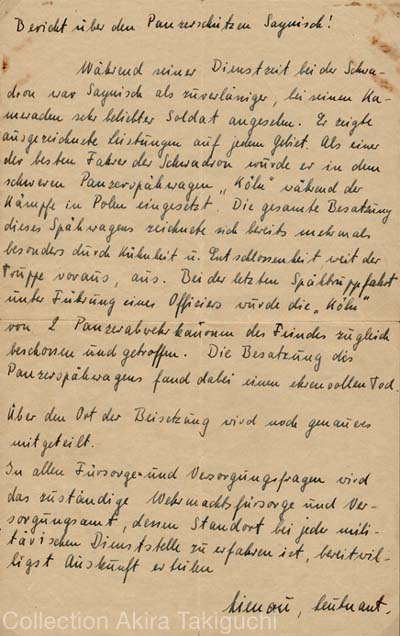 Bericht über den Panzerschützen Saynisch!
Während seiner Dienstzeit bei der Schwa-
dron war Saynisch als zuverlässiger, bei seinen Ka-
meraden sehr beliebter Soldat angesehn. Er zeigte
ausgezeichnete Leistungen auf jedem Gebiet. Als einer
der besten Fahrer der Schwadron wurde er in dem
schweren Panzerspähwagen „Köln" während der
Kämpfe in Polen eingesetzt. Die gesamte Besatzung
dieses Spähwagens zeichnete sich bereits mehrmals
besonders durch Kühnheit u. Entschlossenheit weit der
Truppe voraus, aus. Bei der letzten Spähtruppfahrt
unter Führung eines Officiers wurde die „Köln"
von 2 Panzerabwehrkanonen des Feindes zugleich
beschossen und getroffen. Die Besatzung des
Panzerspähwagens fand dabei einen ehrenvollen Tod.
Über den Ort der Beisetzung wird noch genaueres
mitgeteilt.
In allen Fürsorge- und Versorgungsfragen wird
das zuständige Wehrmachtsfürsorge und Ver-
sorgungsamt, dessen Standort bei jeder mili-
tärischen Dienststelle zu erfahren ist, bereitwil-
ligst Auskunft erteilen
Lienau, Leutnant.
Collection Akira Takiguchi